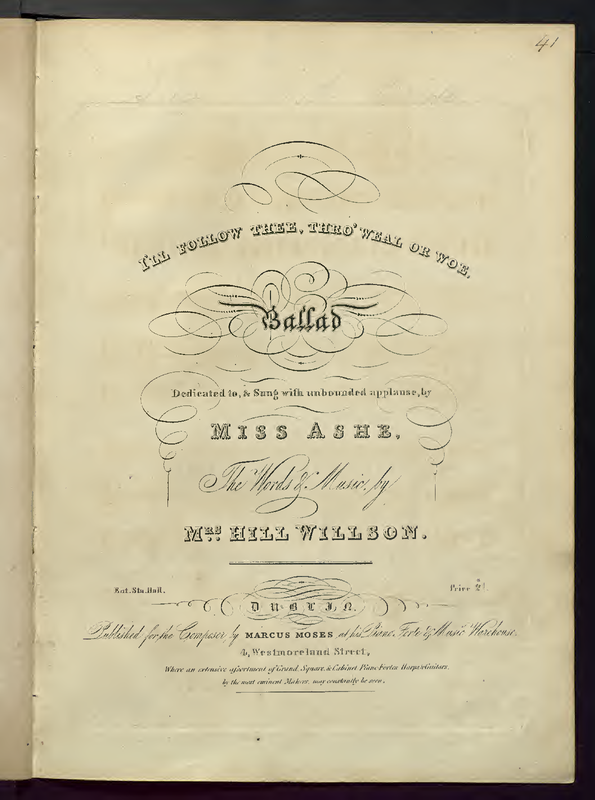 41
I'LL FOLLOW THEE, THRO' WEAL OR WOE.
Ballad
Dedicated to, & Sung with unbounded applause, by
MISS ASHE,
The Words & Music, by
MRS. HILL WILLSON.
Ent. Sta. Hall. Price 2
DUBLIN.
Published for the Composer by MARCUS MOSES at his Piano, Forte & Music Warehouse.
4, Westmoreland Street,
Where an extensive assortment of Grand, Square, & Cabinet Piano Fortes Harps & Guitars.
by the most eminent Makers, may constantly be seen.